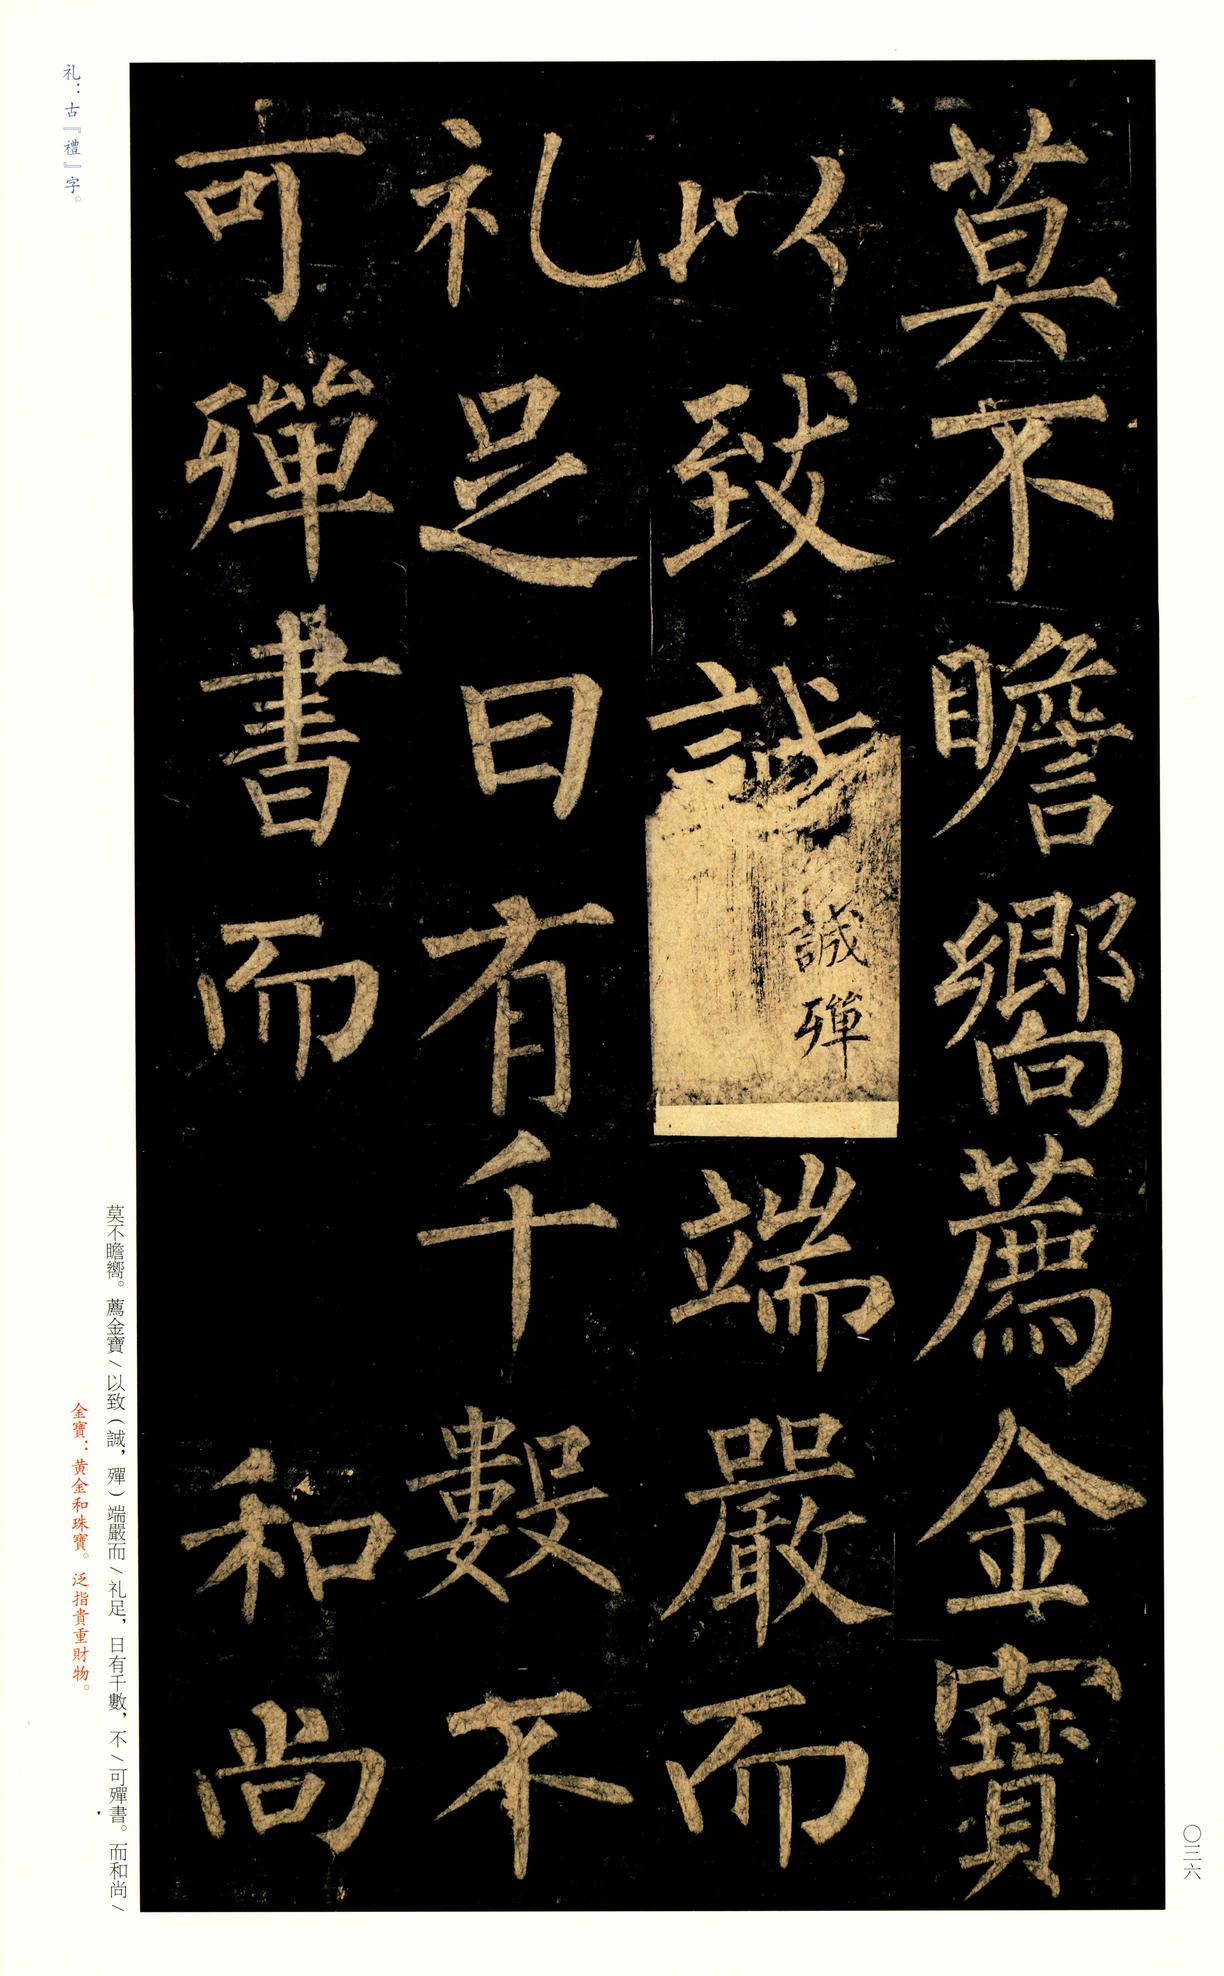 莫不瞻嚮薦金寶
以致誠
誠殫
端嚴而
礼足日有千數不
可殫書而和尚
礼：古『禮』字。
莫不瞻嚮。薦金寶／以致（誠，殫）端嚴而／礼足，日有千數，不／可殫書。而和尚／
金寶：黃金和珠寶。泛指貴重財物。
〇三六